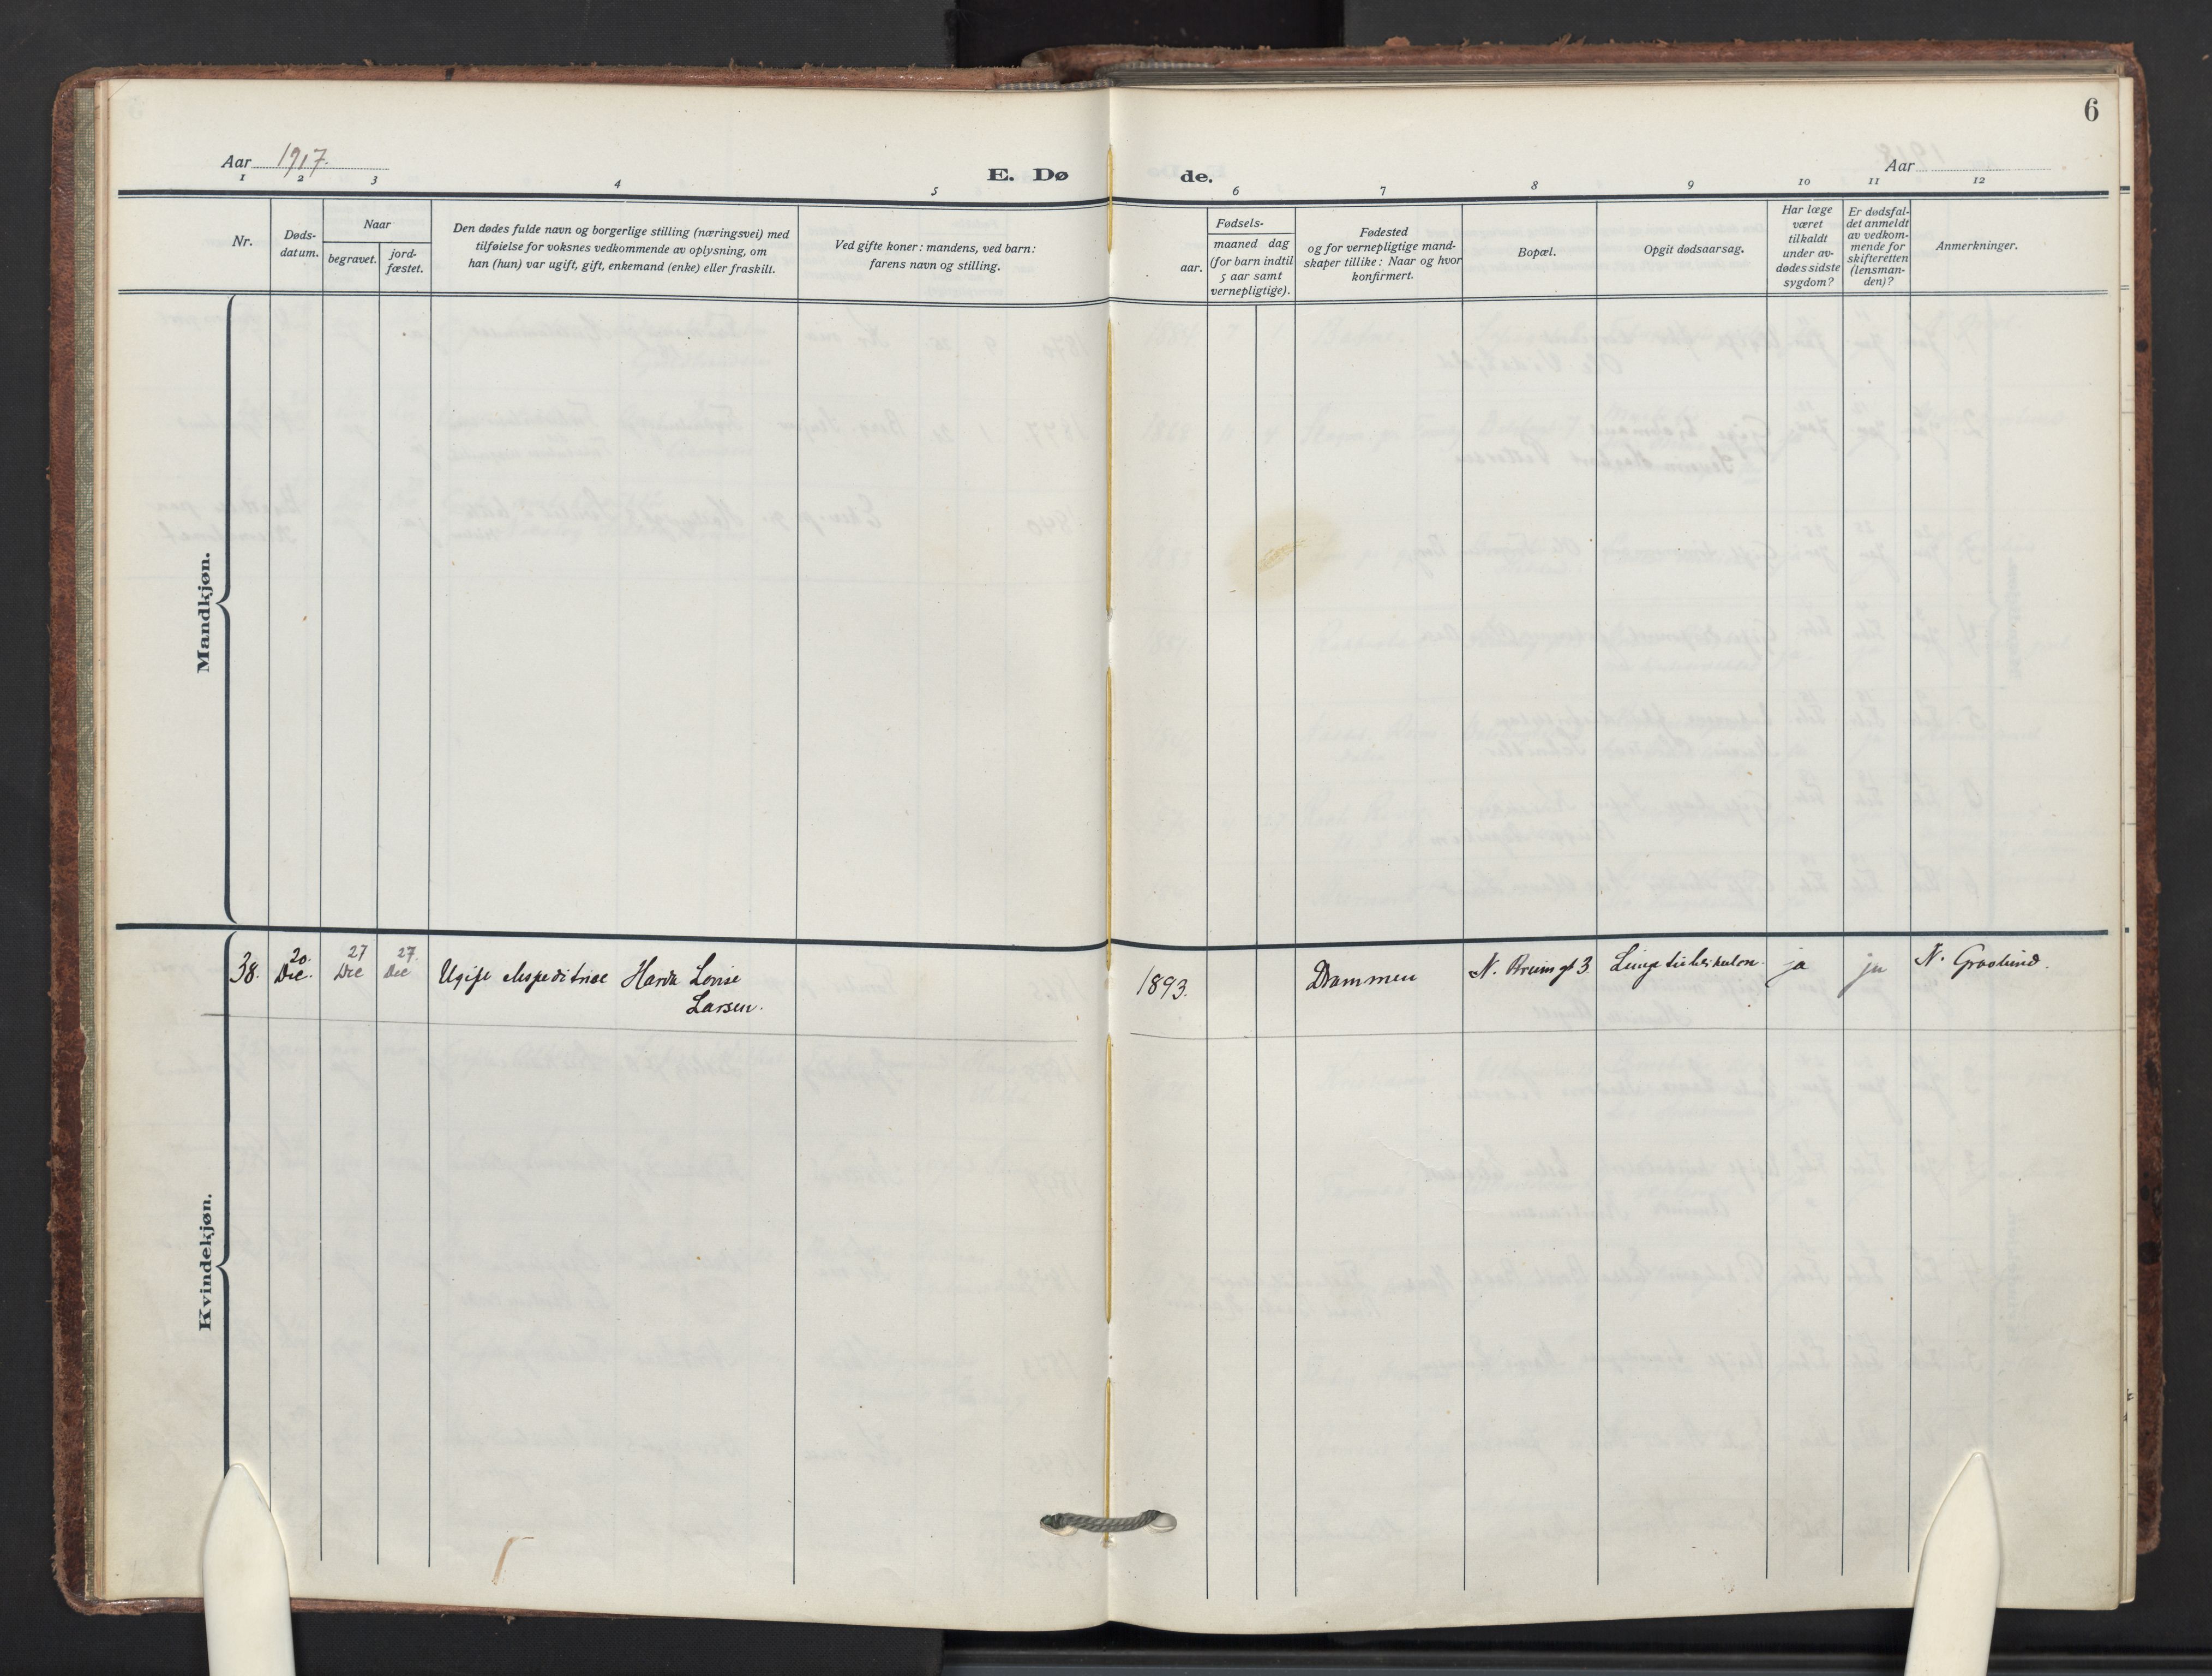 6
Aar 1917.
E. Dø de.
Aar
1 2 3 4 5 6 7 8 9 10 11 12
Nr.
Døds-
datum.
Naar
begravet.
jord-
fæstet.
Den dødes fulde navn og borgerlige stilling (næringsvei) med
tilføielse for voksnes vedkommende av oplysning, om
han (hun) var ugift, gift, enkemand (enke) eller fraskilt.
Ved gifte koner: mandens, ved barn:
farens navn og stilling.
Fødsels-
aar.
maaned dag
(for barn indtil
5 aar samt
vernepligtige).
Fødested
og for vernepligtige mand-
skaper tillike: Naar og hvor
konfirmert.
Bopæl.
Opgit dødsaarsag.
Har læge
været
tilkaldt
under av-
dødes sidste
sygdom?
Er dødsfal-
det anmeldt
av vedkom-
mende for
skifteretten
(lensman-
den)?
Anmerkninger.
Mandkjøn.
Kvindekjøn.
38. 20. Dec. 27 Dec 27. Dec Ugift ekspeditrice Lovise
Larsen.
1893. Drammen N. gt 3 ja ja N. Gravlund.